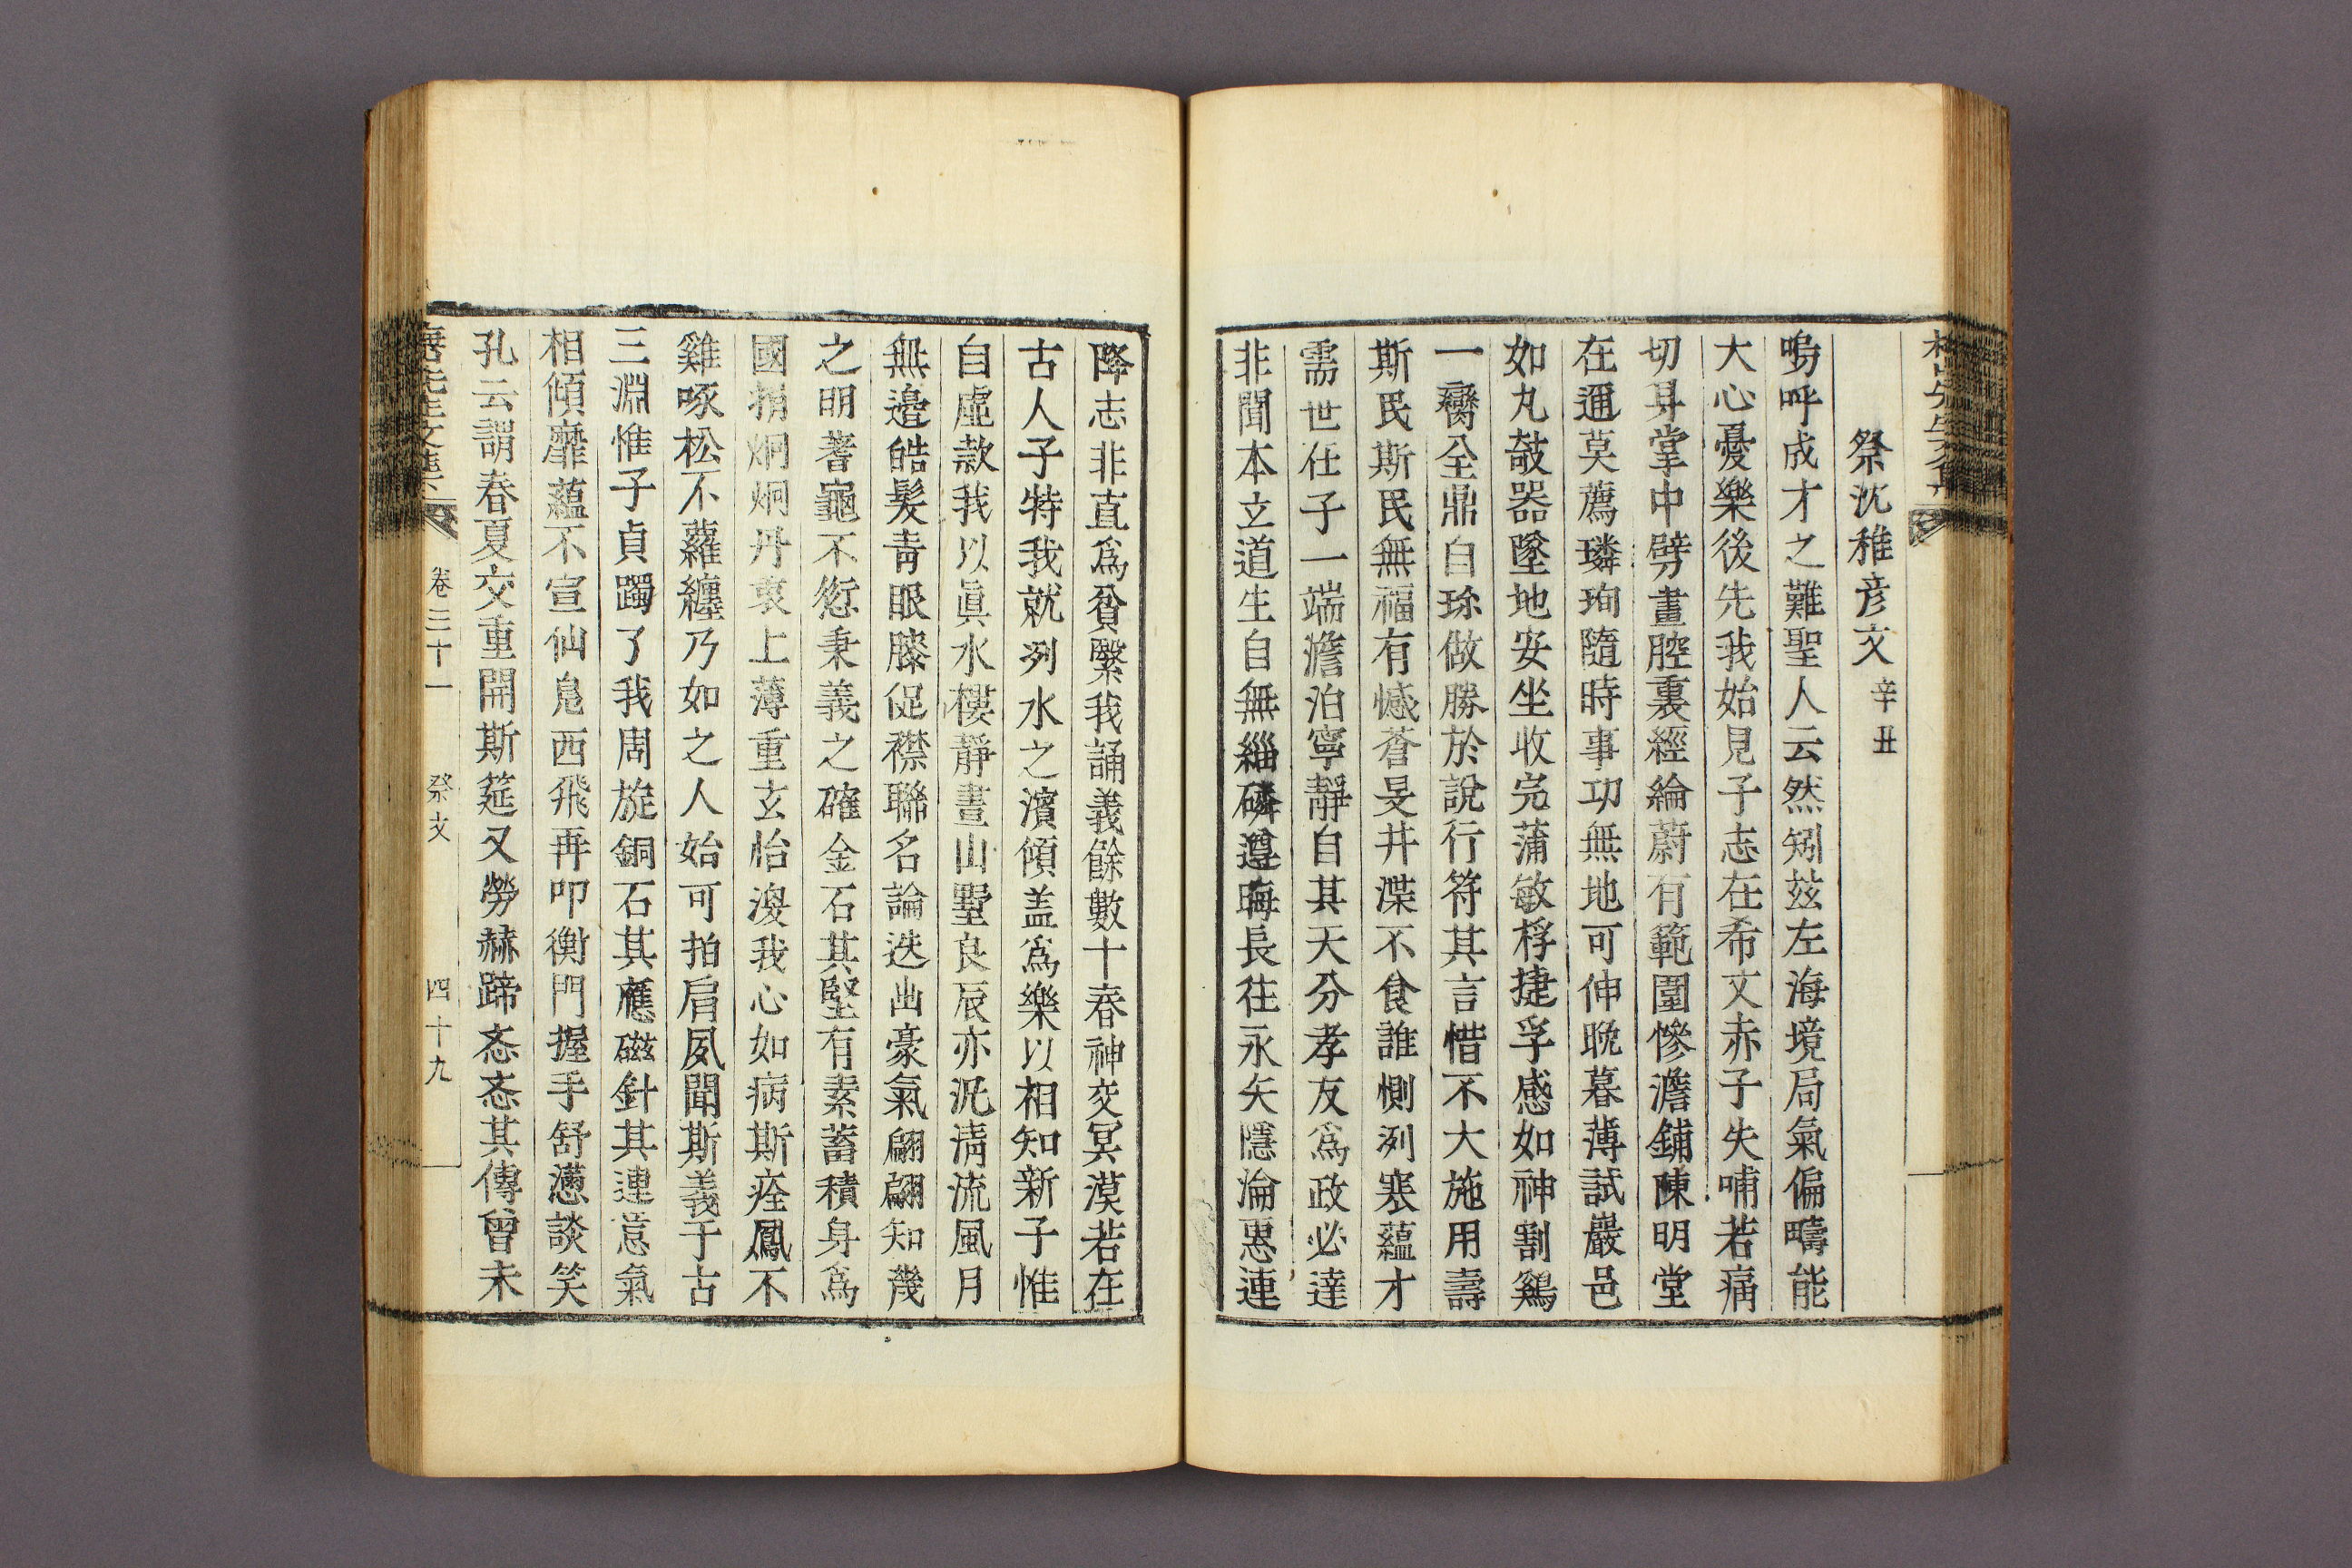 祭沈稚彦文 辛丑
嗚呼成才之難聖人云然矧玆左海境局氣偏疇能
大心憂樂後先我始見子志在希文赤子失哺若痛
切身掌中劈畫腔裏經綸蔚有範圍慘澹鋪陳明堂
在邇莫薦璘珣隨時事功無地可伸晩暮薄試巖邑
如丸攲器墜地安坐收完蒲敏桴捷孚感如神割鷄
一臠全鼎白珎做勝於說行符其言惜不大施用壽
斯民斯民無福有憾蒼旻井渫不食誰惻洌寒蘊才
需世在子一端澹泊寧靜自其天分孝友爲政必達
非聞本立道生自無緇磷遵晦長往永矢隱淪惠連
降志非直爲貧繄我誦義餘數十春神交冥漠若在
古人子特我就洌水之濱傾盖爲樂以相知新子惟
自虛款我以眞水樓靜晝山墅良辰亦況淸流風月
無邊皓髮青眼膝促襟聯名論迭出豪氣翩翩知幾
之明蓍龜不愆秉義之確金石其堅有素蓄積身爲
國捐炯炯丹衷上薄重玄怡渙我心如病斯痊鳳不
雞啄松不蘿纏乃如之人始可拍肩夙聞斯義于古
三淵惟子貞躅了我周旋銅石其應磁針其連意氣
相傾靡蘊不宣仙鳧西飛再叩衡門握手舒懣談笑
孔云謂春夏交重開斯筵又勞赫蹄忞忞其傳曾未
卷三十一 祭文 四十九